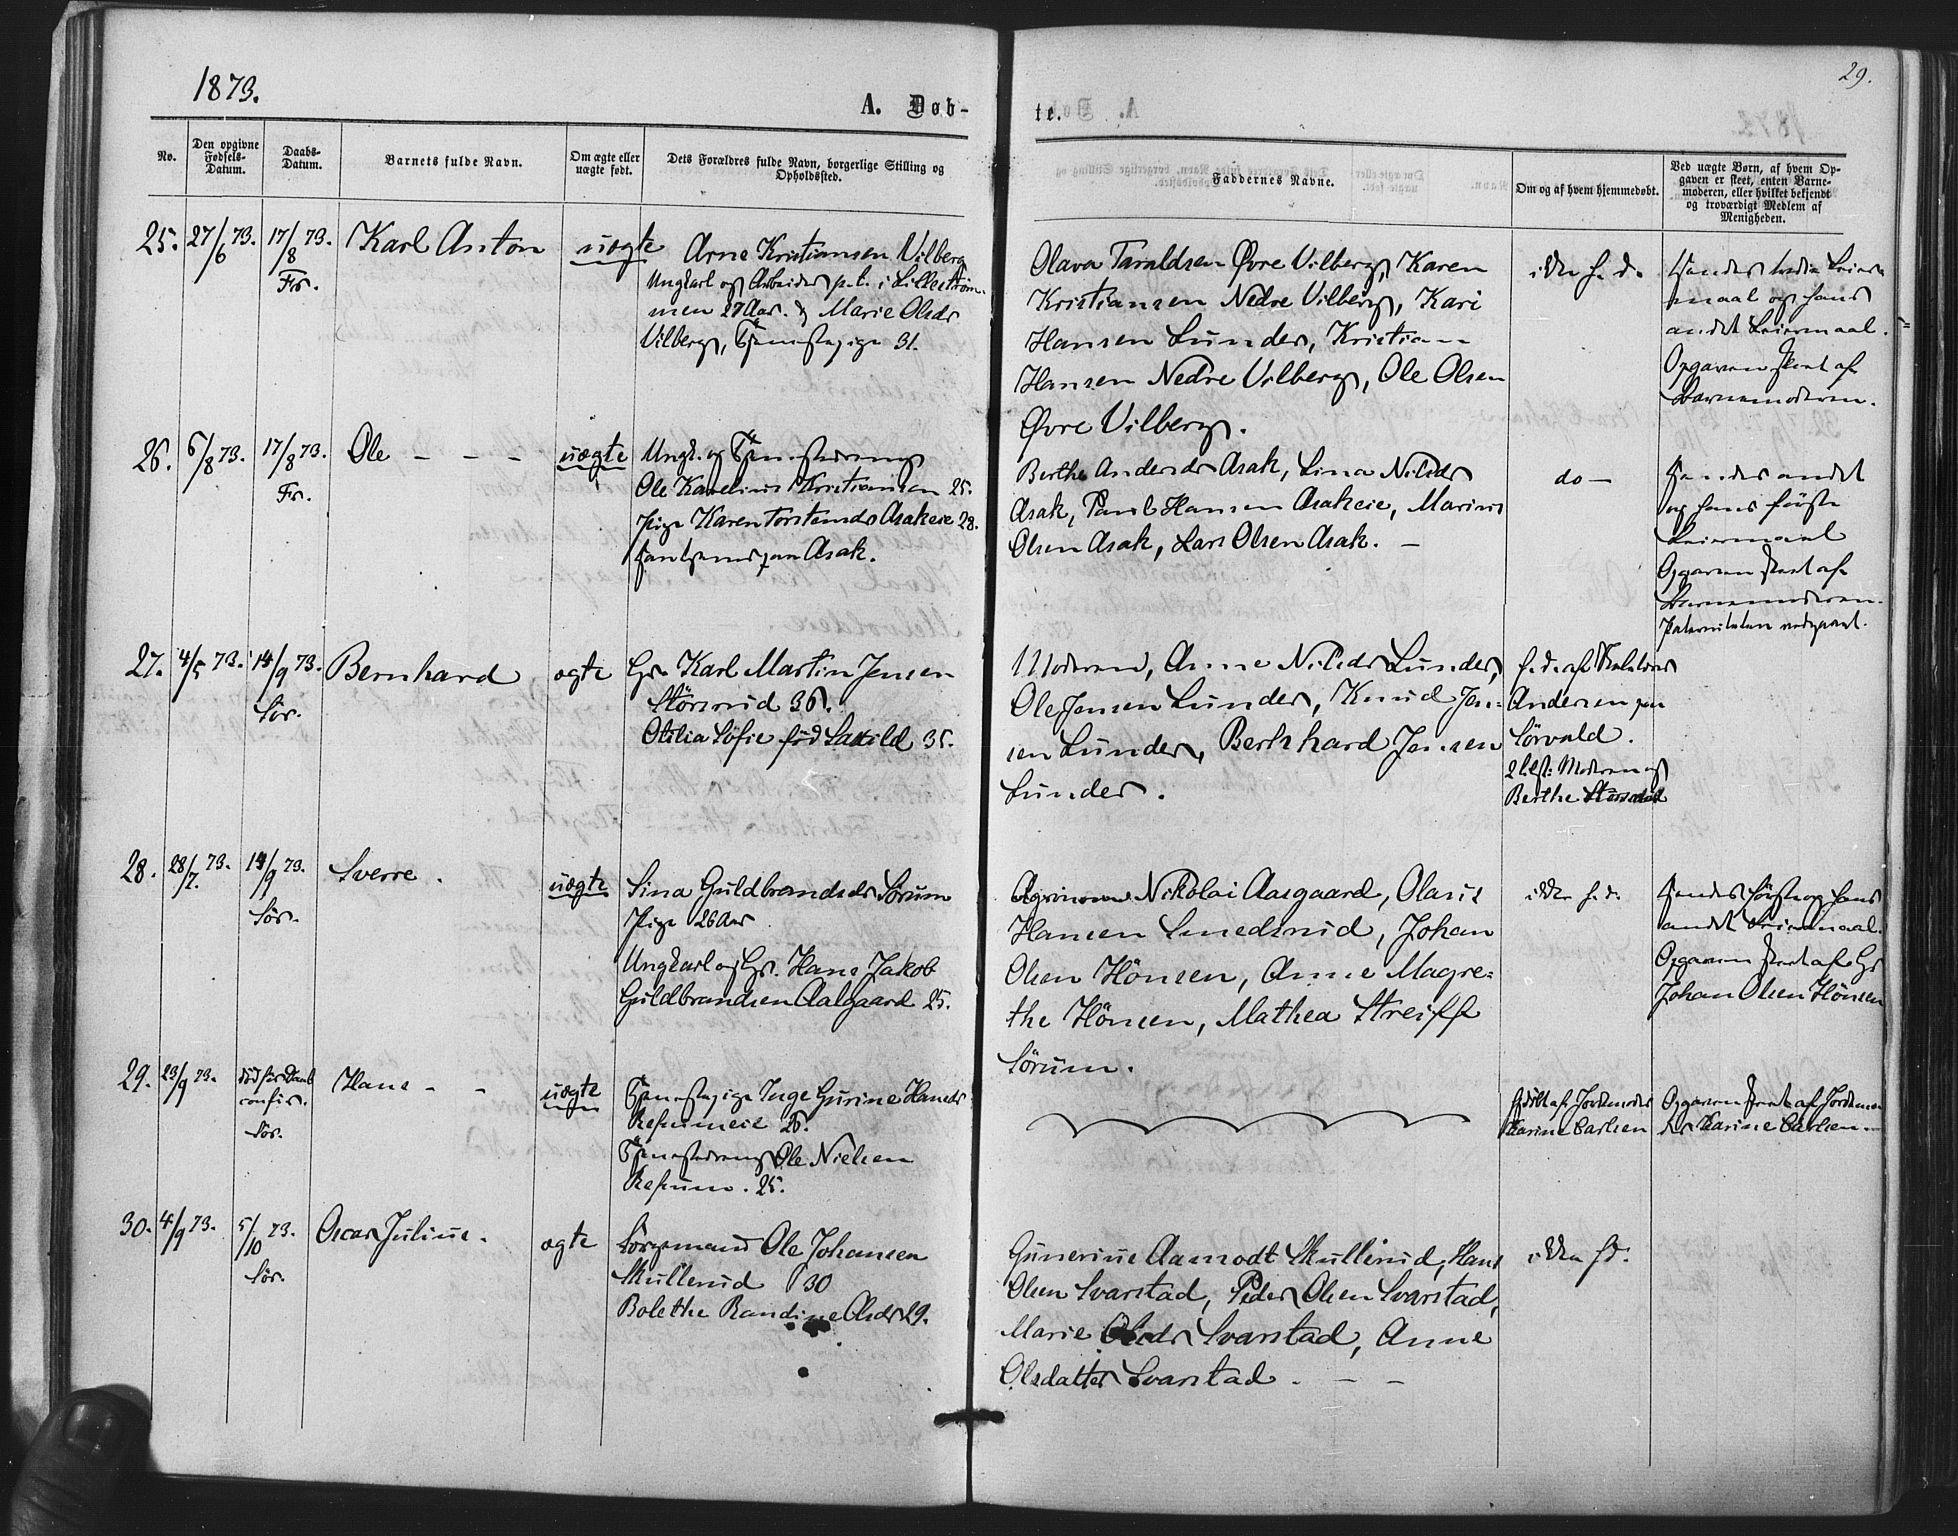 1873.
29.
A. Døb-
te.
No.
Den opgivne Fødsels-Datum.
Daabs-Datum.
Barnets fulde Navn.
Om ægte eller uægte født.
Dets Forældres fulde Navn, borgerlige Stilling og Opholdssted.
Faddernes Navne.
Om og af hvem hjemmedøbt.
Ved uægte Børn, af hvem Opgaven er skeet, enten Barnemoderen, eller hvilket bekjendt og troværdigt Medlem af Menigheden.
25. 27/6 73. 17/8 73. Karl Anton uægte Arne Kristiansen Vilberg
Fr.
Ungkarl og Arbeider p. t. i Lillestrøm-
men 27 Aar. & Marie Olsdr
Vilberg, Tjenestepige 31.
Olava Taraldsen Øvre Vilberg, Karen
Kristiansen Nedre Vilberg, Kari
Hansen Lunder, Kristian
Hansen Nedre Vilberg, Ole Olsen
Øvre Vilberg.
ikke h. d.
Hendes tredie Leier-
maal og hans
andet Leiermaal.
Opgaven skeet af
Barnemoderen.
26. 6/8 73. 17/8 73. Ole - - - uægte Ungk. og Tjenestedreng
Fr.
Ole Karelius Kristiansen 25.
Pige Karen Torstensdr Asakeie 28.
Asak.
Berthe Andersdr Asak, Lina Nilsdr
Asak, Paul Hansen Asakeie, Marius
Olsen Asak, Lars Olsen Asak. —
do —
Hendes andet
og hans første
Leiermaal
Opgaven skeet af
Barnemoderen.
Paterniteten vedgaaet.
27. 4/5 73. 14/9 73. Bernhard ægte Gr. Karl Martin Jensen
Sør.
Størsrud 36.
Otilia Sofie född Laxild 35.
Moderen, Anne Nilsdr Lunder,
Ole Jensen Lunder, Knud Jen-
sen Lunder, Bernhard Jensen
Lunder.
h. d. af
Andersen paa
Sørvald.
Moderen og
Berthe
28. 28/7. 73. 14/9 73. Sverre. uægte Sina Guldbrandsdr Sørum
Sør.
Pige 26 Aar
Ungkarl og Gr. Hans Jakob
Guldbrandsen Aalgaard 25.
Agronom Nikolai Aasgaard, Olaus
Hansen Smedsrud, Johan
Olsen Hönsen, Anne Magre-
the Hönsen, Mathea Streiff
Sørum.
ikke h. d.
Hendes første og hans
andet Leiermaal.
Opgaven skeet af Gr
Johan Olsen Hönsen
29. 23/9 73. død før Daab
confir.
Sør.
Hans - - uægte Tjenestepige Inge Gurine Hansdr
Refsumeie 26.
Tjenestedreng Ole Nielsen
Refsum. 25.
hjdøbt af Jordemoder
Karine Carlsen
Opgaven skeet af Jordemo-
der Karine Carlsen.—
30. 4/9 73. 5/10 73. Oscar Julius. ægte Ole Johansen
Sør.
Skullerud 30
Bolethe Randine Olsdr 29.
Gunerius Aamodt Skullerud, Hans
Olsen Svarstad, Peder Olsen Svarstad,
Marie Olsdr Svarstad, Anne
Olsdatter Svarstad. - -
ikke hd.